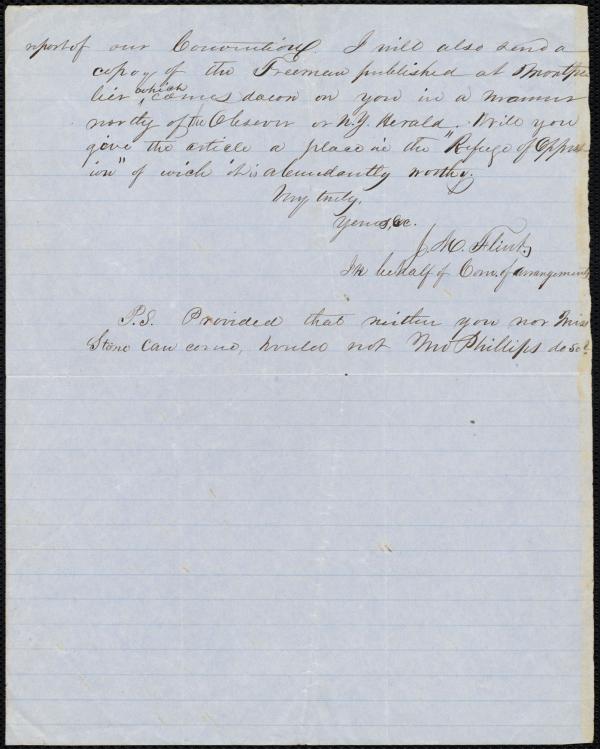 report of our Convention I will also send a
copy of the Freeman published at Montpe
lier, which comes dacon on you in a manner
worthy of the Observer or N.Y. Herald. Will you
give the article a place in the "Refuge of Oppress
ion" of wich it is abundantly worthy.
Very truly,
Yours, &c.
J. M. Flint,
In behalf of Com. of arrangements
P.S. Provided that neither you nor Miss
Stone can come, would not Mr Phillips do so?